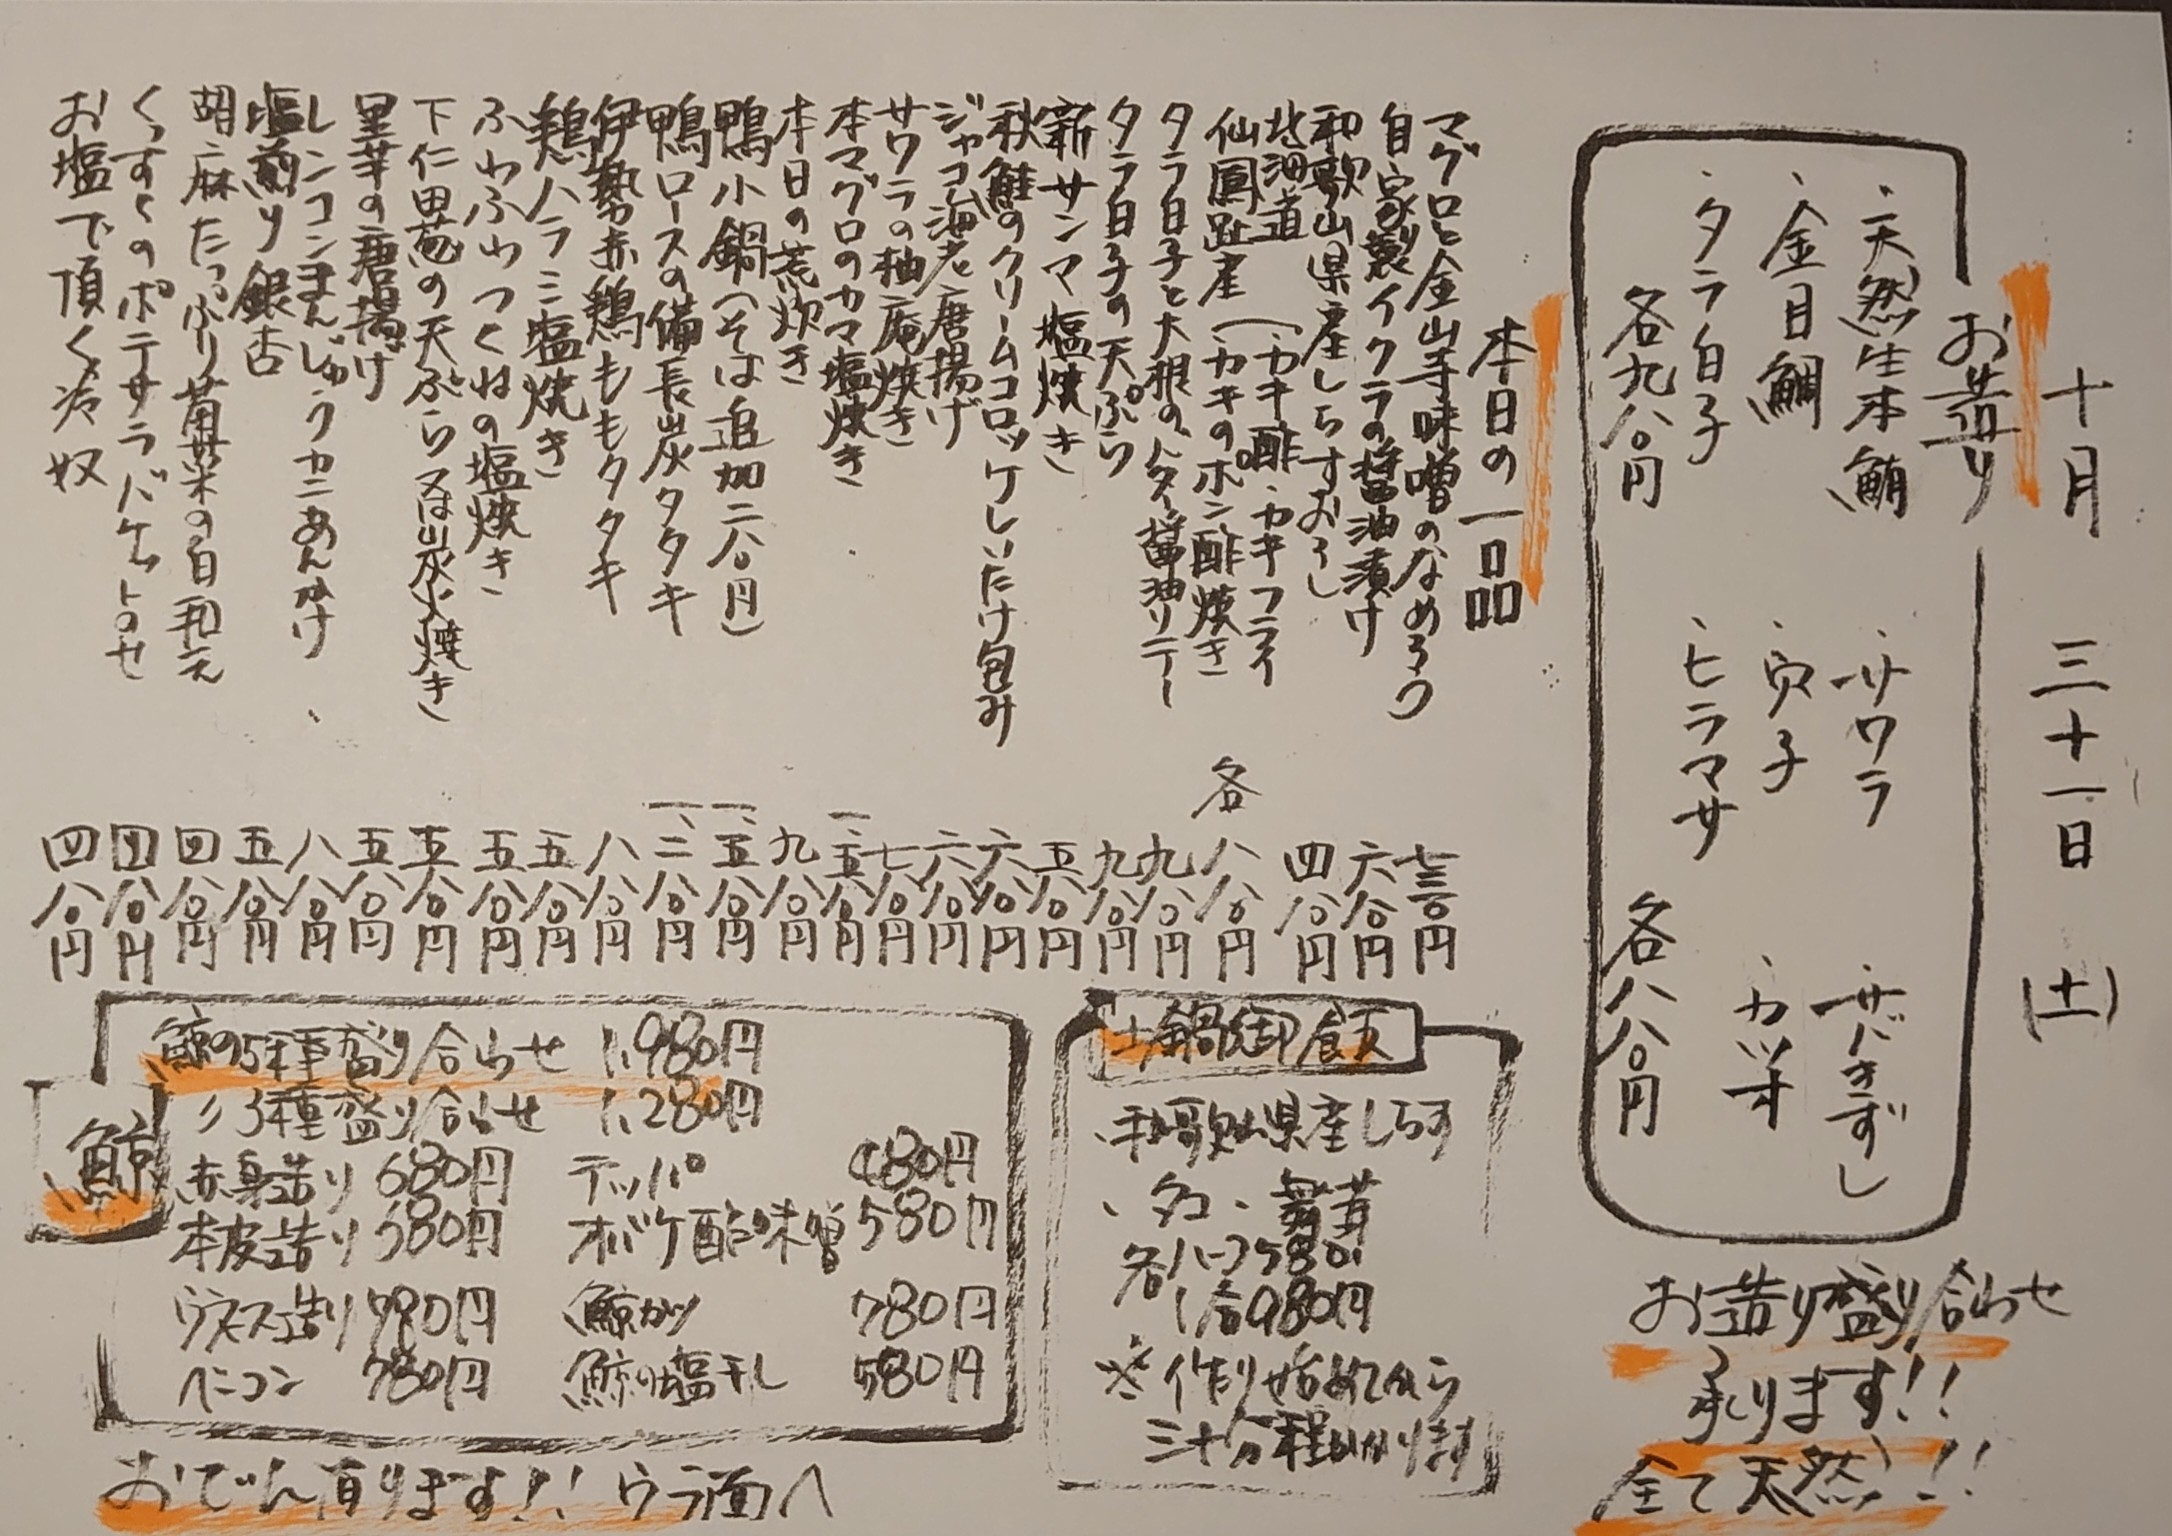 十月 三十一日 (土)
お造り
・天然生本鮪
・金目鯛
・タラ白子
各九八〇円
・サワラ
・穴子
・ヒラマサ
・サバきずし
・カツオ
各八八〇円
お造り盛り合わせ
承ります!!
全て天然!!
本日の一品
マグロと金山寺味噌のなめろう 七三〇円
自家製イクラの醤油漬け 六八〇円
和歌山県産しらすおろし 四八〇円
北海道 (カキ酢・カキフライ
仙鳳趾産 (カキのポン酢焼き 各八八〇円
タラ白子と大根のバター醤油ソテー 九八〇円
タラ白子の天ぷら 九八〇円
新サンマ塩焼き 五八〇円
秋鮭のクリームコロッケしいたけ包み 六八〇円
ジャコ海老唐揚げ 六八〇円
サワラの柚庵焼き 七八〇円
本マグロのカマ塩焼き 一、五八〇円
本日の荒炊き 九八〇円
鴨小鍋(そば追加二八〇円) 一、五八〇円
鴨ロースの備長炭タタキ 一、二八〇円
伊勢赤鶏ももタタキ 八八〇円
鶏ハラミ塩焼き 五八〇円
ふわふわつくねの塩焼き 五八〇円
下仁田葱の天ぷら又は炭火焼き 五八〇円
里芋の唐揚げ 五八〇円
レンコンまんじゅうカニあんかけ 八八〇円
塩煎り銀杏 五八〇円
胡麻たっぷり菊菜の白和え 四八〇円
くずくずのポテサラバケットのせ 四八〇円
お塩で頂く冷奴 四八〇円
土鍋御飯
・和歌山県産しらす
・タコ・舞茸
各ハーフ580円
1合980円
※作り始めてから
三十分程かかります
鯨
鯨の5種盛り合わせ 1,980円
〃3種盛り合わせ 1,280円
赤身造り 680円
本皮造り 380円
ウネス造り 780円
ベーコン 780円
テッパ 480円
オバケ酢味噌 580円
鯨カツ 780円
鯨の塩干し 580円
おでん有ります!! ウラ面へ